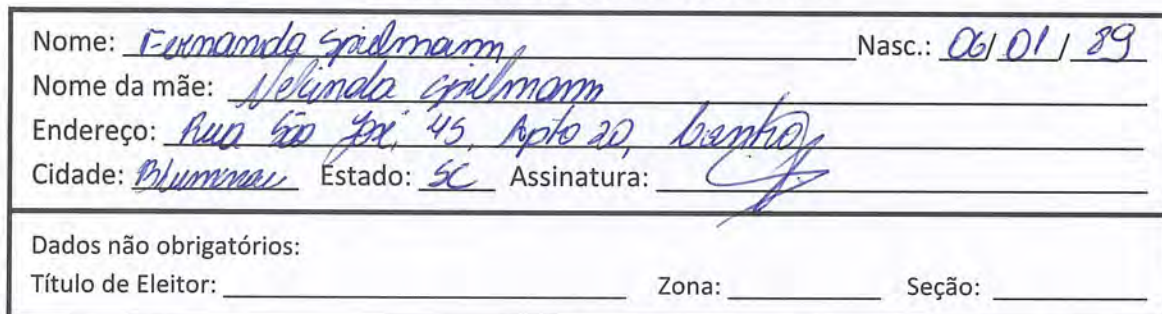 Nome: Fernanda Spielmann Nasc.: 06/01/89
Nome da mãe: Nelinda Spielmann
Endereço: Rua São José, 45, Apto 20, Centro
Cidade: Blumenau Estado: SC Assinatura:
Dados não obrigatórios:
Título de Eleitor: Zona: Seção: